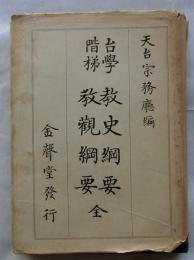 天台宗務廳編
台學階梯 教史綱要 教觀綱要 全
金聲堂發行